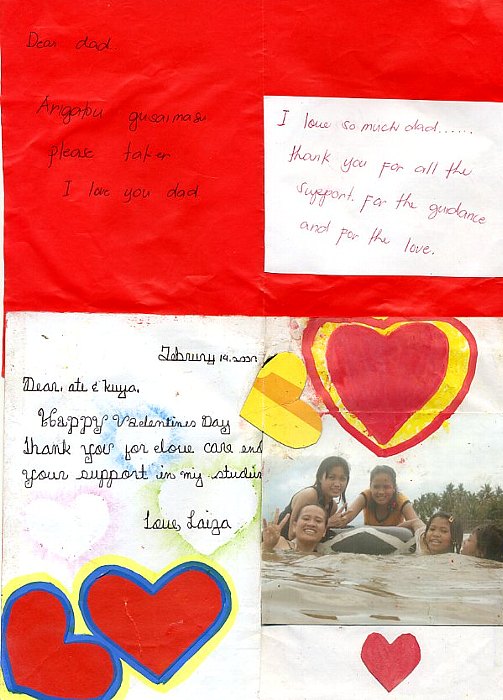 Dear dad
Arigatou gusaimasu
please taker
I love you dad
I love so much dad......
thank you for all the
support. for the guidance
and for the love.
Dear, ate & kuya,
Happy Valentines Day
Thank you for
your support in my
Love, Laiza